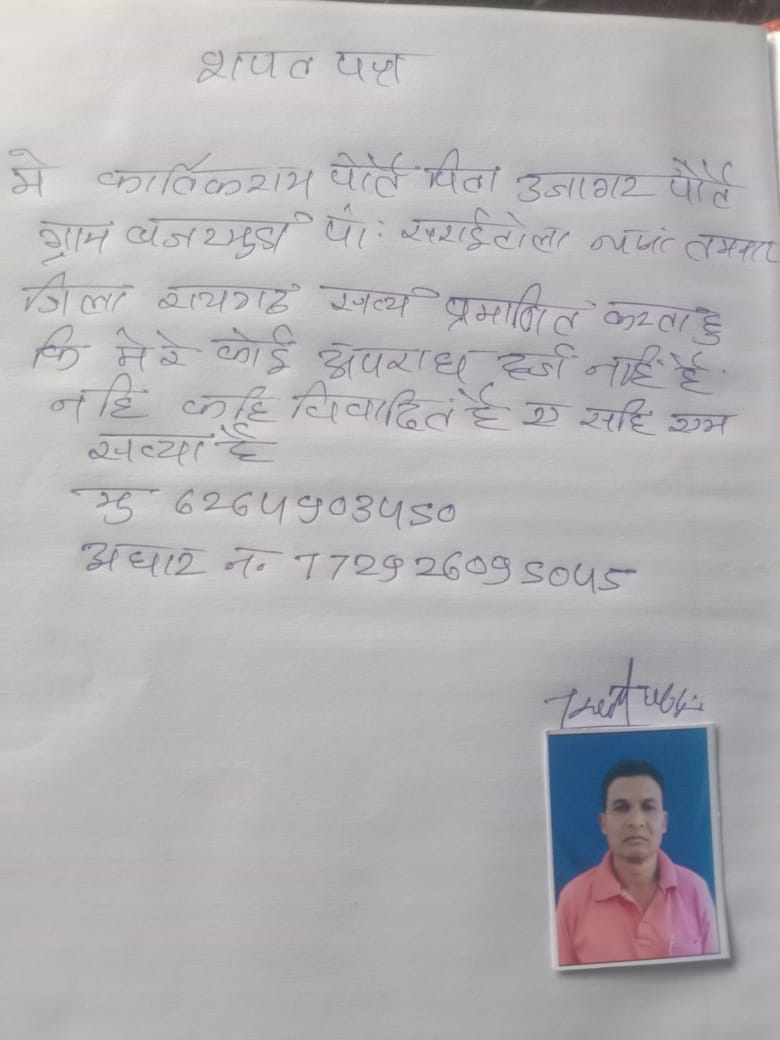 शपत पत्र
मे कार्तिकराम पोर्ते पिता उजागर पोर्ते
ग्राम बजरमुडा पो: सराईटोला
जिला रायगढ स्वयं प्रमाणित करता हु
कि मेरे कोई अपराध दर्ज नहिं है.
नहि कहि विवादित है ए सहि एम
सत्या है
मु 6264903450
अधार न. 772926095045